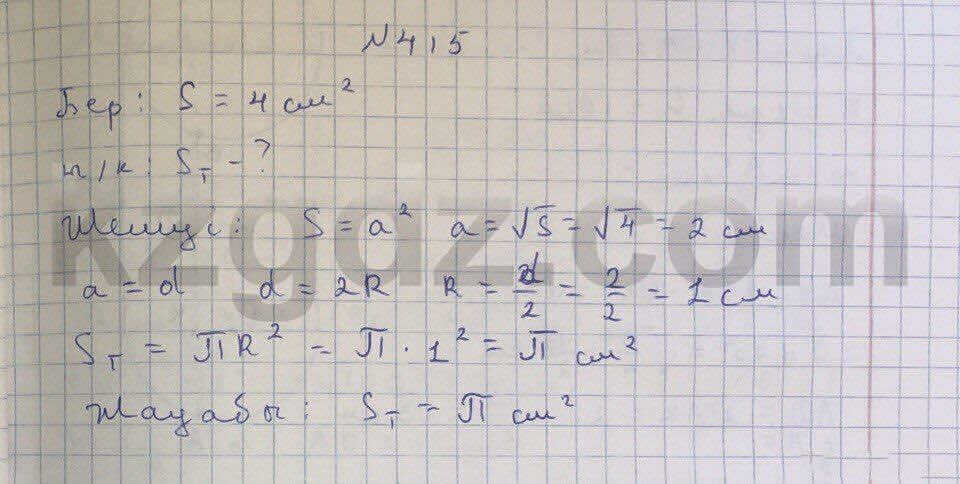 №415
Бер: S = 4 см²
т/к: Sт - ?
Шешуі: S = a² a = √S = √4 = 2 см
a = d d = 2R R = d/2 = 2/2 = 1 см
Sт = πR² = π · 1² = π см²
Жауабы: Sт = π см²
kzgdz.com